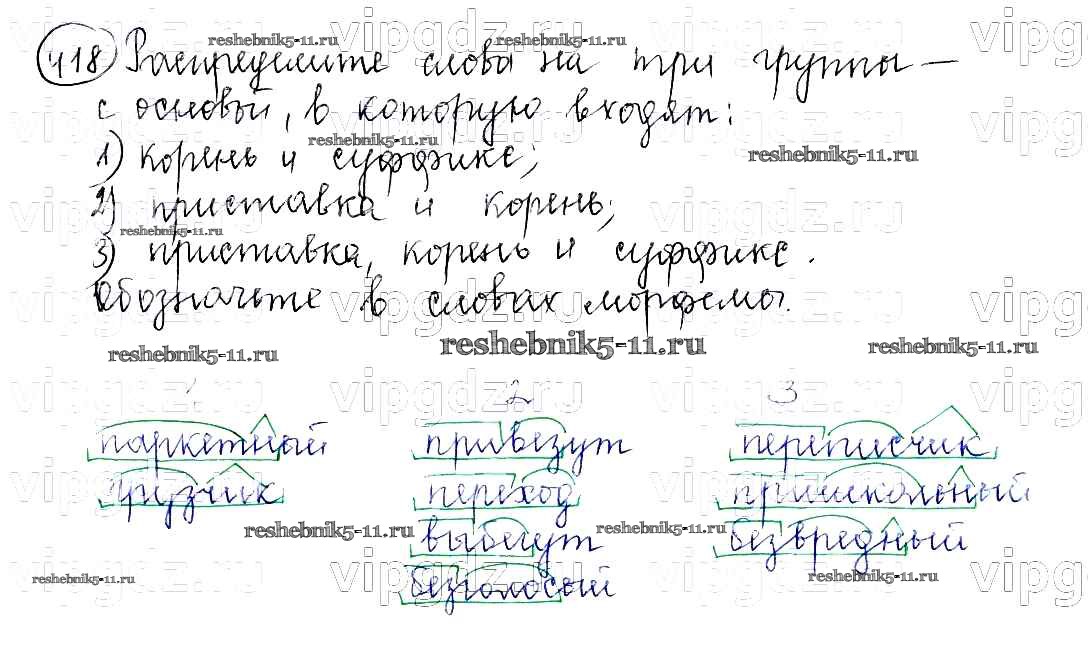 418 Распределите слова на три группы —
с основой, в которую входят:
1) корень и суффикс;
2) приставка и корень;
3) приставка, корень и суффикс.
Обозначьте в словах морфемы.
1 2 3
паркетный привезут переписчик
грузчик переход пришкольный
выбегут безвредный
безголосый
reshebnik5-11.ru
vipgdz.ru